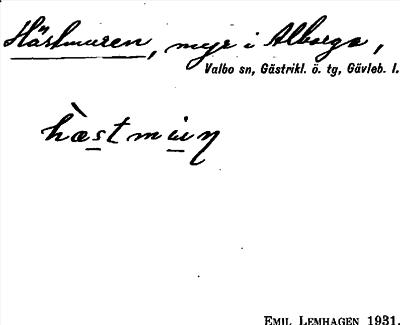 Hästmuren, myr i Alborga,
Valbo sn, Gästrikl. ö. tg, Gävleb. l.
hæ̀stmuıŋ
EMIL LEMHAGEN 1931.